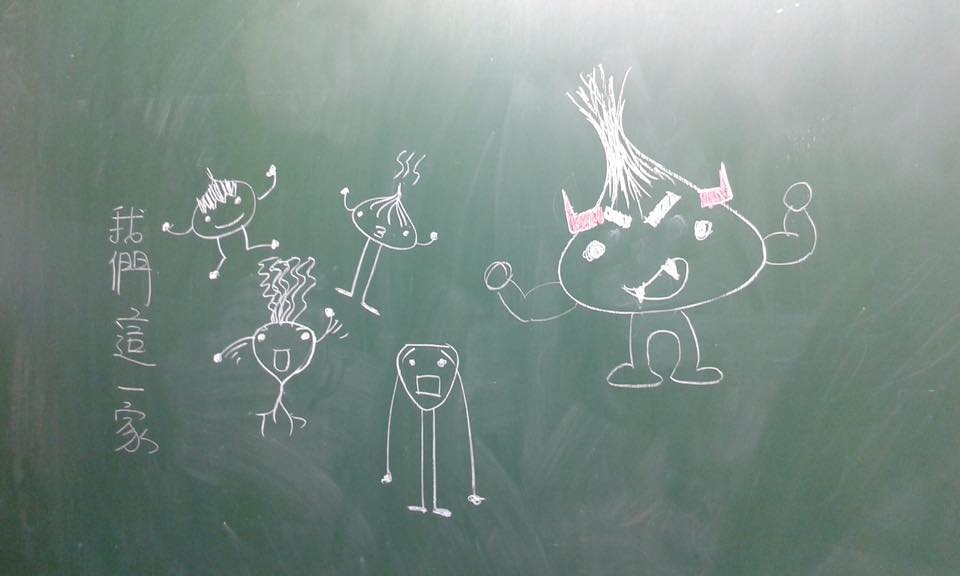 我們這一家